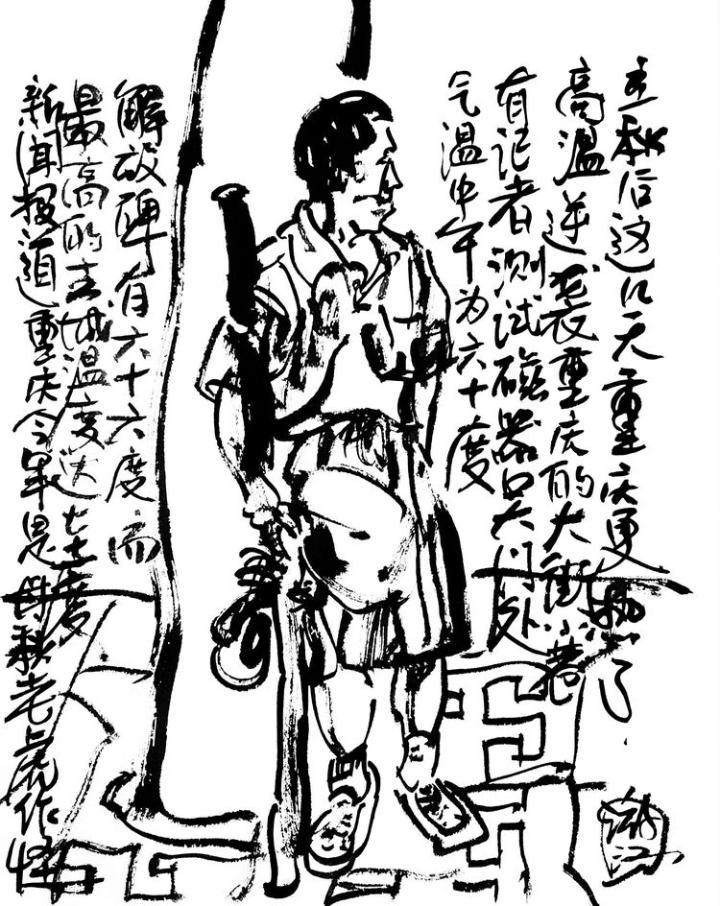 立秋后这几天重庆更热了
高温逆袭重庆的大街小巷
有记者测试磁器口大门外
气温中午为六十度
解放碑有六十六度而
最高的主城温度达七十七度
新闻报道重庆今年是母秋老虎作怪